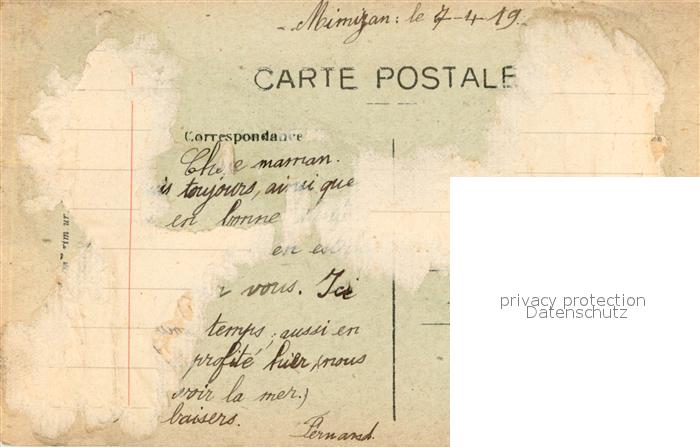 Mimizan: le 7-4-19
CARTE POSTALE
Correspondance
Ch e maman.
is toujours, ainsi que
en bonne
en es
vous. Ici
temps, aussi en
profité hier, (nous
voir la mer.)
baisers.
Fernand.
privacy protection
Datenschutz